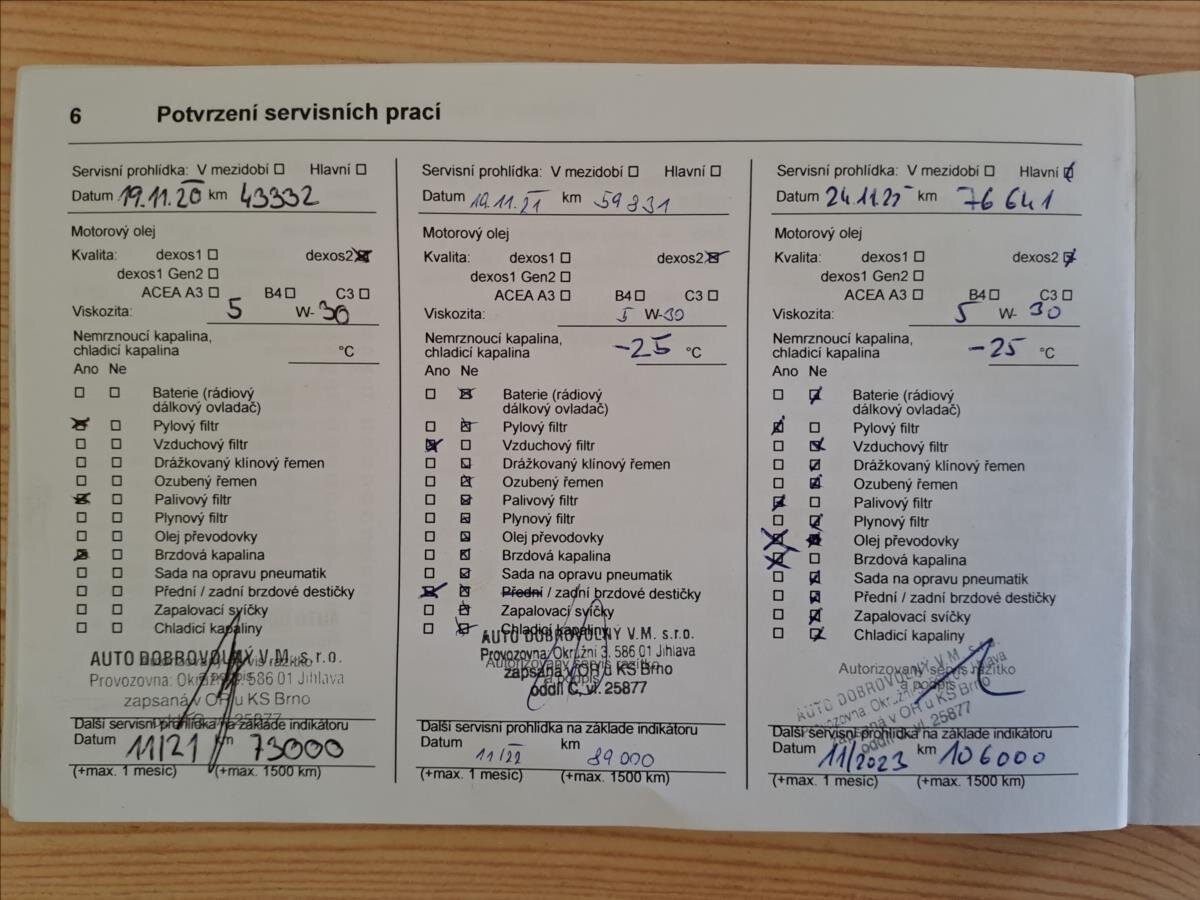 6 Potvrzení servisních prací
Servisní prohlídka: V mezidobí Hlavní
Datum 19.11.20 km 43332
Motorový olej
Kvalita: dexos1 dexos2
dexos1 Gen2
ACEA A3 B4 C3
Viskozita: 5 W-30
Nemrznoucí kapalina,
chladicí kapalina °C
Ano Ne
Baterie (rádiový
dálkový ovladač)
Pylový filtr
Vzduchový filtr
Drážkovaný klínový řemen
Ozubený řemen
Palivový filtr
Plynový filtr
Olej převodovky
Brzdová kapalina
Sada na opravu pneumatik
Přední / zadní brzdové destičky
Zapalovací svíčky
Chladicí kapaliny
AUTO DOBROVOLNÝ V.M. s.r.o.
Provozovna: Okružní 586 01 Jihlava
zapsaná v OR u KS Brno
Další servisní prohlídka na základě indikátoru
Datum 11/21 km 73000
(+max. 1 mesic) (+max. 1500 km)
Servisní prohlídka: V mezidobí Hlavní
Datum 19.11.21 km 59831
Motorový olej
Kvalita: dexos1 dexos2
dexos1 Gen2
ACEA A3 B4 C3
Viskozita: 5 W-30
Nemrznoucí kapalina,
chladicí kapalina -25 °C
Ano Ne
Baterie (rádiový
dálkový ovladač)
Pylový filtr
Vzduchový filtr
Drážkovaný klínový řemen
Ozubený řemen
Palivový filtr
Plynový filtr
Olej převodovky
Brzdová kapalina
Sada na opravu pneumatik
Přední / zadní brzdové destičky
Zapalovací svíčky
Chladicí kapaliny
AUTO DOBROVOLNÝ V.M. s.r.o.
Provozovna: Okružní 3, 586 01 Jihlava
Autorizovaný servis razítko
zapsaná v OR u KS Brno
a podpis
oddíl C, vl. 25877
Další servisní prohlídka na základě indikátoru
Datum 11/22 km 89000
(+max. 1 mesic) (+max. 1500 km)
Servisní prohlídka: V mezidobí Hlavní
Datum 24.11.22 km 76641
Motorový olej
Kvalita: dexos1 dexos2
dexos1 Gen2
ACEA A3 B4 C3
Viskozita: 5 W-30
Nemrznoucí kapalina,
chladicí kapalina -25 °C
Ano Ne
Baterie (rádiový
dálkový ovladač)
Pylový filtr
Vzduchový filtr
Drážkovaný klínový řemen
Ozubený řemen
Palivový filtr
Plynový filtr
Olej převodovky
Brzdová kapalina
Sada na opravu pneumatik
Přední / zadní brzdové destičky
Zapalovací svíčky
Chladicí kapaliny
Autorizovaný servis razítko
a podpis
AUTO DOBROVOLNÝ V.M. s.r.o.
zapsaná v OR u KS Brno
oddíl vl. 25877
Další servisní prohlídka na základě indikátoru
Datum 11/2023 km 106000
(+max. 1 mesic) (+max. 1500 km)